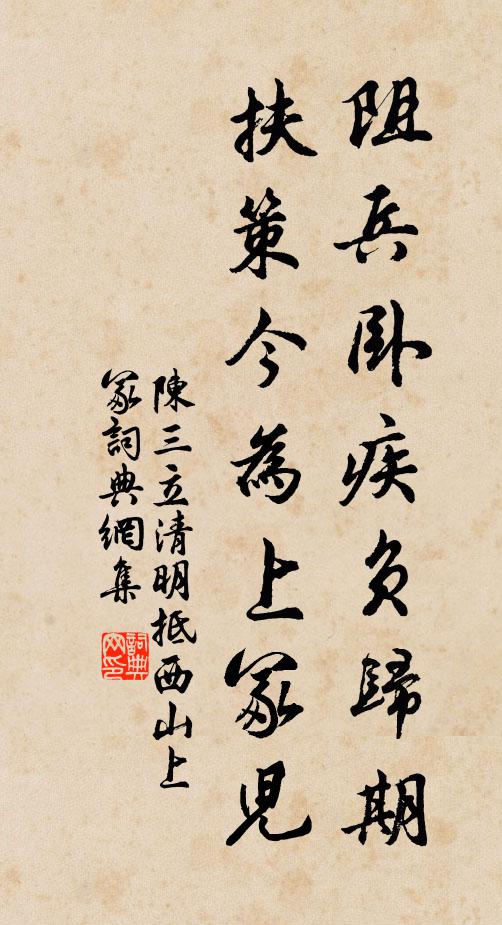 阻兵卧疾负歸期
扶策今為上冢兒
陳三立清明抵西山上
冢詞典網集
詞典
网印